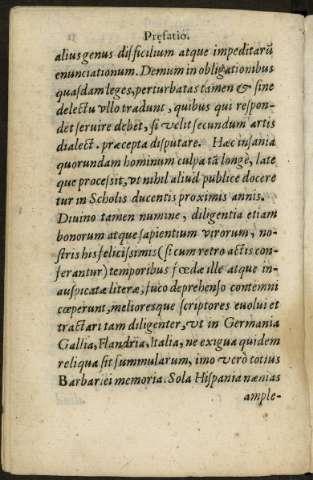 Pręfatio.
alius genus difficilium atque impeditarũ
enunciationum. Demum in obligationibus
quasdam leges, perturbatas tamen & sine
delectu vllo tradunt, quibus qui respon-
det seruire debet, si velit secundum artis
dialect. præcepta disputare. Hæc insania
quorundam hominum culpa tã longè, late
que processit, vt nihil aliud publice docere
tur in Scholis ducentis proximis annis.
Diuino tamen numine, diligentia etiam
bonorum atque sapientium virorum, no-
stris his felicissimis (si cum retro actis con-
ferantur) temporibus fœdæ ille atque in-
auspicatæ literæ, fuco deprehenso contemni
cœperunt, melioresque scriptores euolui et
tractari tam diligenter, vt in Germania
Gallia, Flandria, Italia, ne exigua quidem
reliqua sit summularum, imo verò totius
Barbariei memoria. Sola Hispania nænias
ample-